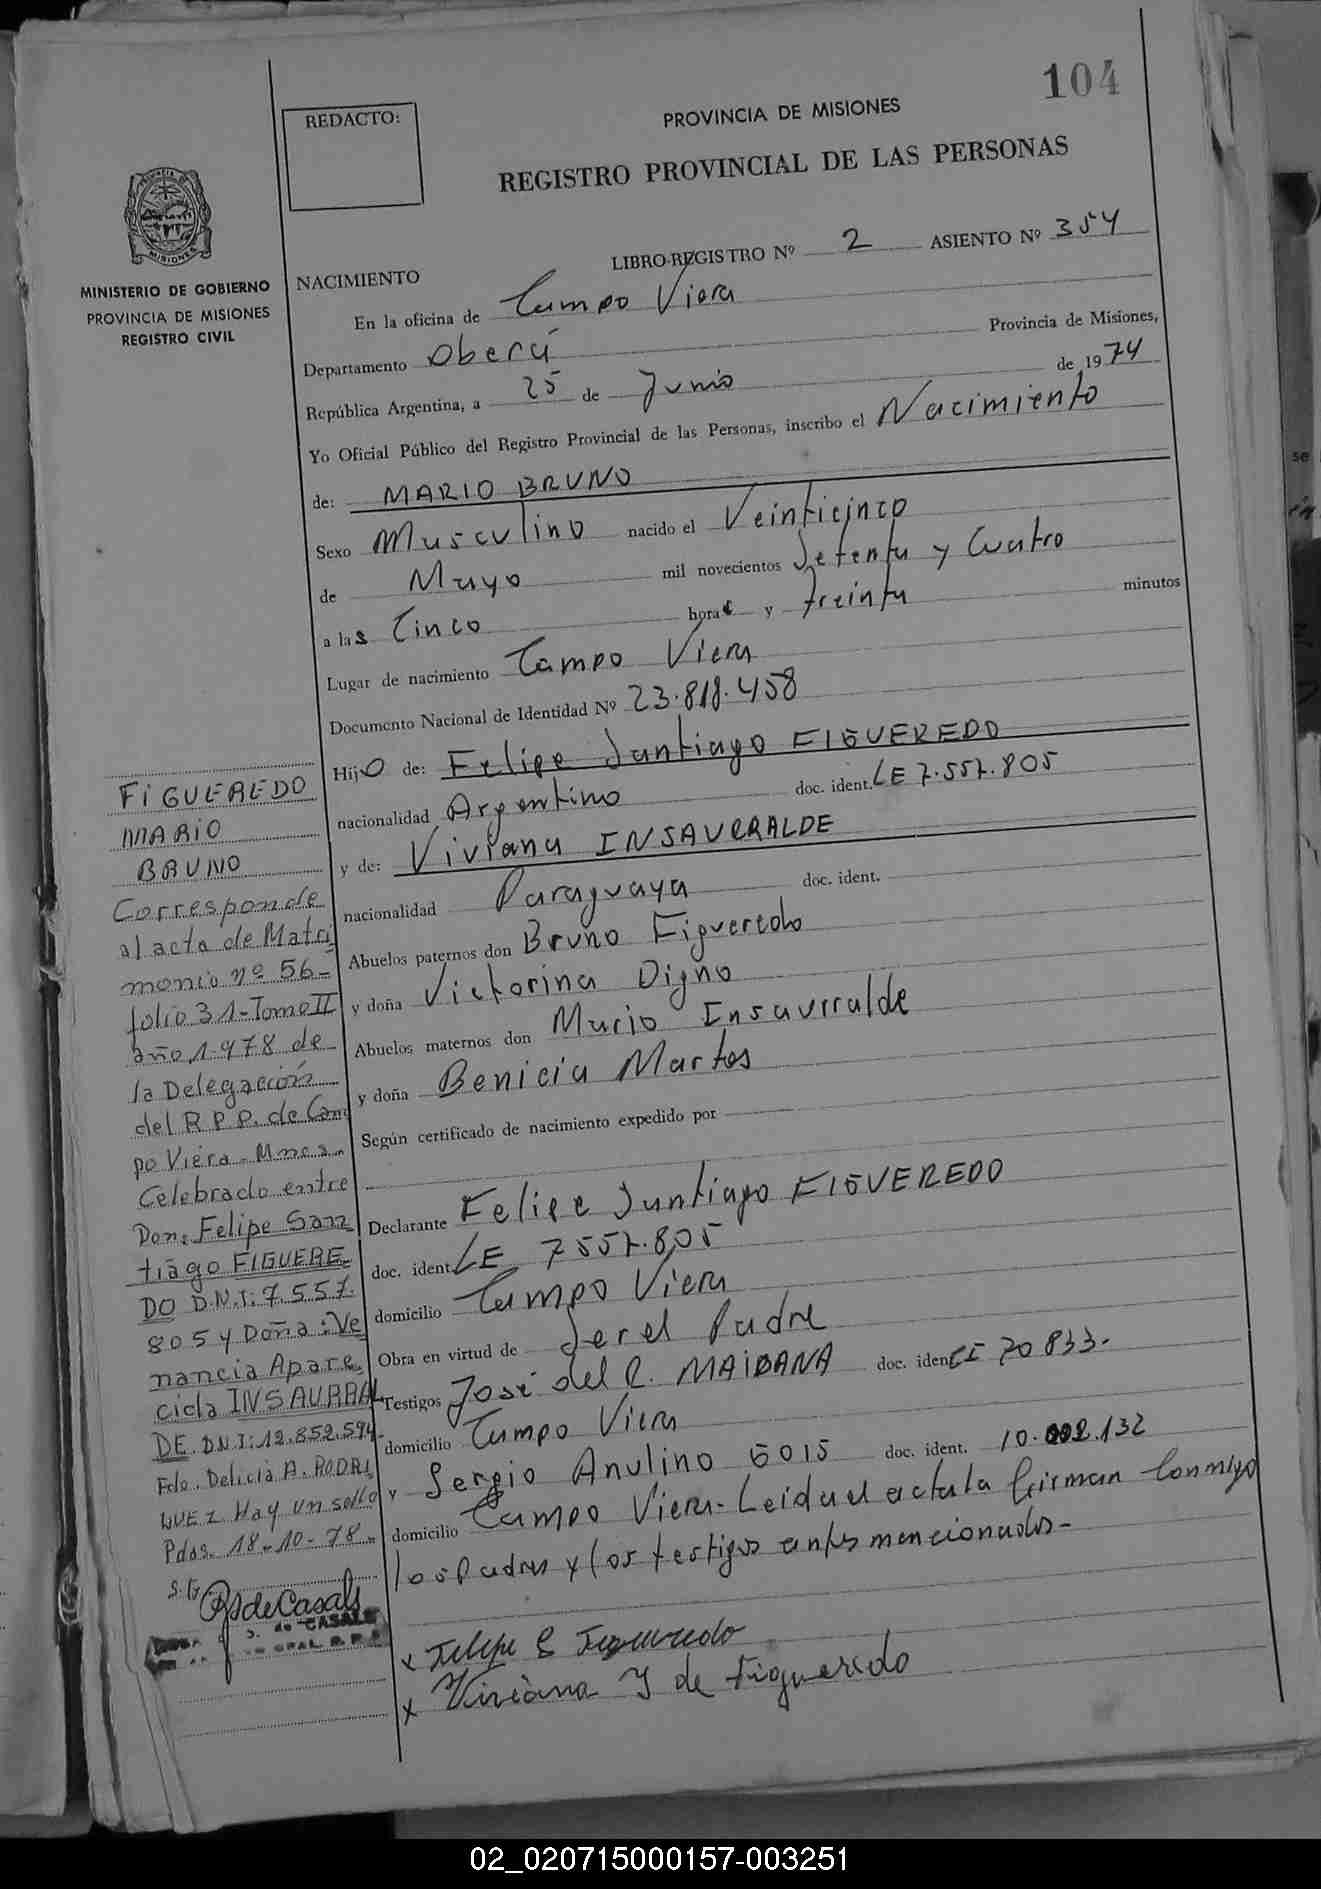 104
REDACTO:
PROVINCIA DE MISIONES
REGISTRO PROVINCIAL DE LAS PERSONAS
MINISTERIO DE GOBIERNO
PROVINCIA DE MISIONES
REGISTRO CIVIL
LIBRO-REGISTRO Nº 2 ASIENTO Nº 354
NACIMIENTO
En la oficina de Campo Viera
Departamento Oberá Provincia de Misiones,
República Argentina, a 25 de Junio de 1974
Yo Oficial Público del Registro Provincial de las Personas, inscribo el Nacimiento
de: MARIO BRUNO
Sexo Masculino nacido el Veinticinco
de Mayo mil novecientos Setenta y Cuatro
a las Cinco horas y treinta minutos
Lugar de nacimiento Campo Viera
Documento Nacional de Identidad Nº 23.818.458
Hijo de: Felipe Santiago FIGUEREDO
nacionalidad Argentino doc. ident. LE 7.557.805
y de: Viviana INSAURRALDE
nacionalidad Paraguaya doc. ident.
Abuelos paternos don Bruno Figueredo
y doña Victorina Digno
Abuelos maternos don Mario Insaurralde
y doña Benicia Martos
Según certificado de nacimiento expedido por
Declarante Felipe Santiago FIGUEREDO
doc. ident. LE 7557.805
domicilio Campo Viera
Obra en virtud de Ser el Padre
Testigos José del R. MAIDANA doc. ident. CI 70833.
domicilio Campo Viera
y Sergio Anulino doc. ident. 10.002.132
domicilio Campo Viera - Leida el acta la firman conmigo
los Padres y los testigos antes mencionados -
x Felipe S Figueredo
x Viviana Y de Figueredo
FIGUEREDO
MARIO
BRUNO
Corresponde
al acta de Matri
monio nº 56 -
folio 31 - Tomo II
año 1.978 de
la Delegación
del R.P.P. de Cam
po Viera - Mnes.
Celebrado entre
Don: Felipe San
tiago FIGUERE
DO D.N.I: 7.557.
805 y Doña: Ve
nancia Apare
cida INSAURRAL
DE. D.N.I: 12.852.594.
Fdo. Delicia A. RODRI
GUEZ Hay un sello
Pdas. 18-10-78 -
de Casals
de CASALS
02_020715000157-003251